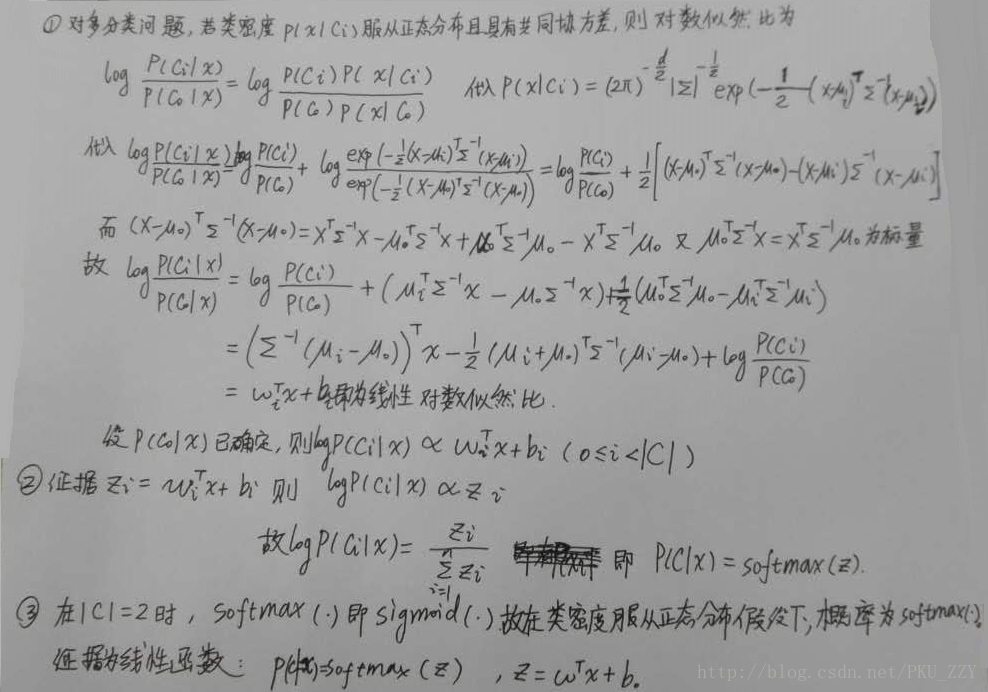 ① 对多分类问题,若类密度 P(x|Ci)服从正态分布且具有共同协方差,则对数似然比为
log P(Ci|x)/P(C₀|x) = log P(Ci)P(x|Ci)/P(C₀)P(x|C₀) 代入 P(x|Ci) = (2π)^{-d/2}|Σ|^{-1/2} exp(-1/2 (x-μi)ᵀΣ⁻¹(x-μi))
代入 log P(Ci|x)/P(C₀|x) = log P(Ci)/P(C₀) + log exp(-1/2(x-μi)ᵀΣ⁻¹(x-μi))/exp(-1/2(x-μ₀)ᵀΣ⁻¹(x-μ₀)) = log P(Ci)/P(C₀) + 1/2[(x-μ₀)ᵀΣ⁻¹(x-μ₀)-(x-μi)Σ⁻¹(x-μi)]
而 (x-μ₀)ᵀΣ⁻¹(x-μ₀)=xᵀΣ⁻¹x-μ₀ᵀΣ⁻¹x+μ₀ᵀΣ⁻¹μ₀-xᵀΣ⁻¹μ₀ 又 μ₀ᵀΣ⁻¹x=xᵀΣ⁻¹μ₀为标量
故 log P(Ci|x)/P(C₀|x) = log P(Ci)/P(C₀) + (μiᵀΣ⁻¹x - μ₀Σ⁻¹x)+1/2(μ₀ᵀΣ⁻¹μ₀-μiᵀΣ⁻¹μi)
= (Σ⁻¹(μi-μ₀))ᵀx - 1/2(μi+μ₀)ᵀΣ⁻¹(μi-μ₀)+log P(Ci)/P(C₀)
= wiᵀx+bi即为线性对数似然比.
设 P(C₀|x)已确定,则logP(Ci|x) ∝ wiᵀx+bi (0≤i<|C|)
② 证据 zi = wiᵀx+bi 则 logP(Ci|x) ∝ zi
故logP(Ci|x)= zi/Σ_{i=1}^{n} zi 即 P(C|x)=softmax(z).
③ 在|C|=2时, softmax(·)即sigmoid(·)故在类密度服从正态分布假设下,概率为softmax(·),
证据为线性函数: P(c|x)=softmax(z) , z=wᵀx+b。
http://blog.csdn.net/PKU_ZZY